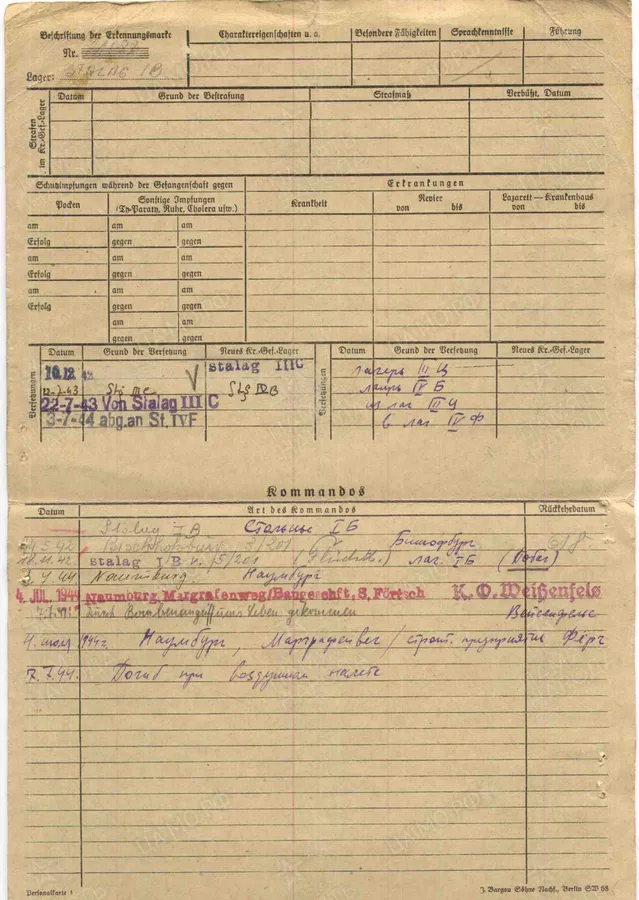 Beschriftung der Erkennungsmarke
Nr.
Lager: STALAG IB
Charaktereigenschaften u. a.
Besondere Fähigkeiten
Sprachkenntnisse
Führung
Strafen im Kr.-Gef.-Lager
Datum Grund der Bestrafung Strafmaß Verbüßt, Datum
Schutzimpfungen während der Gefangenschaft gegen
Erkrankungen
Pocken
Sonstige Impfungen
(Ty-Paraty, Ruhr, Cholera usw.)
Krankheit
Revier
von bis
Lazarett — Krankenhaus
von bis
am am am
Erfolg gegen gegen
am am am
Erfolg gegen gegen
am am am
Erfolg gegen gegen
am am
gegen gegen
Versetzungen
Datum Grund der Versetzung Neues Kr.-Gef.-Lager
stalag IIIC
22-7-43 Von Stalag III C
3-7-44 abg.an St.IVF
Versetzungen
Datum Grund der Versetzung Neues Kr.-Gef.-Lager
лагерь III Ц
лагерь IV Б
из лаг III Ц
в лаг IV Ф
Kommandos
Datum Art des Kommandos Rückkehrdatum
Stalag IB Сталаг IБ
Бишофбург
stalag I/B лаг. IБ
Naumburg Наумбург
4. JUL. 1944 Naumburg, Margrafenweg/Baugeschft, S, Förtsch K. O. Weißenfels
Durch Bombenangriff ums Leben gekommen Вейсенфельс
4. июля 1944г. Наумбург, Марграфенвег / строит. предприятие Фёрч
7.7.44. Погиб при воздушном налете
Personalkarte 1
J. Bargou Söhne Nachf., Berlin SW 68